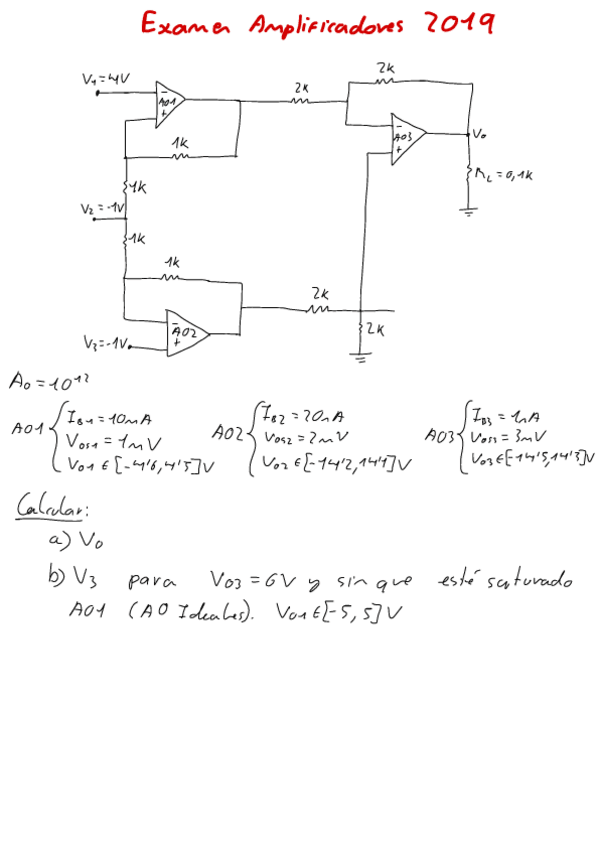 Examen Amplificadores 2019
V1=4V
-
AO1
+
1k
2k
2k
-
AO3
+
Vo
RL=0,1k
1k
V2=-1V
1k
1k
-
AO2
+
V3=-1V
2k
2k
Ao=10^12
AO1 { IB1=10nA
VOS1=1mV
VO1 ∈[-4'6,4'5]V
AO2 { IB2=20nA
VOS2=2mV
VO2 ∈[-14'2,14'1]V
AO3 { IB3=1nA
VOS3=3mV
VO3∈[-14'5,14'3]V
Calcular:
a) Vo
b) V3 para VO3=6V y sin que esté saturado
AO1 (AO Ideales). VO1∈[-5,5]V